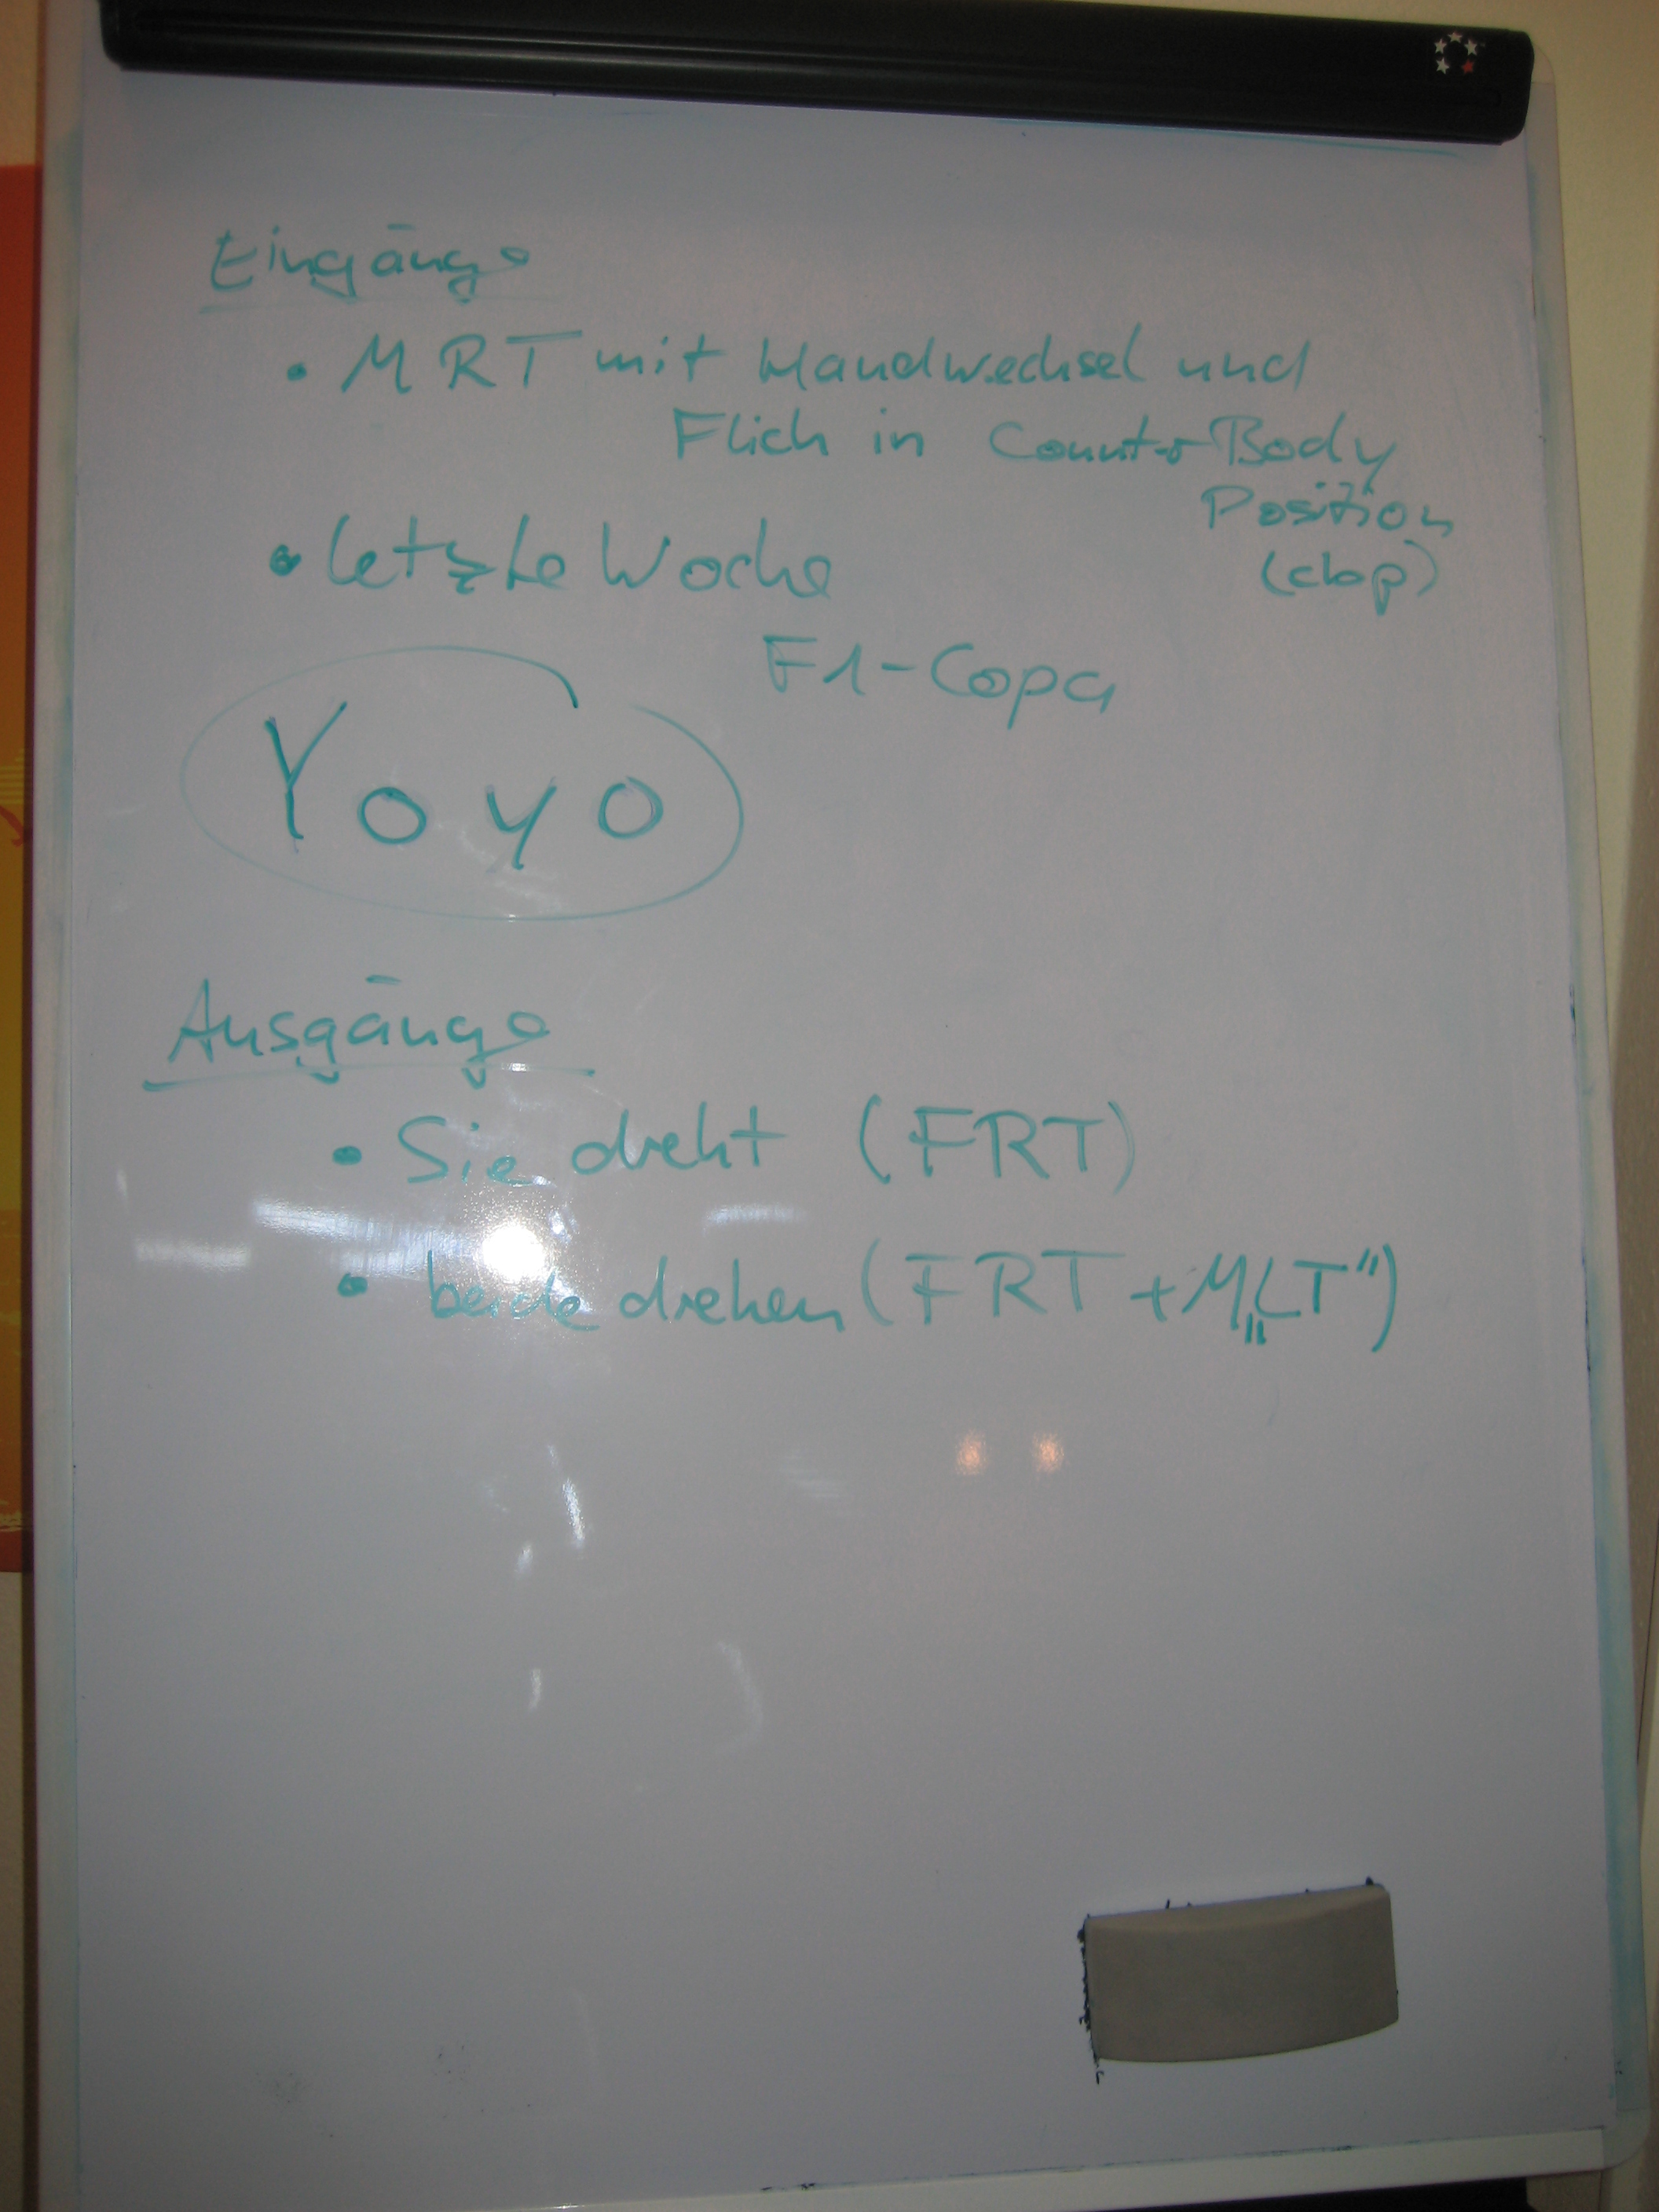 Eingänge
• MRT mit Handwechsel und
Flich in Counter Body
Position
(cbp)
• letzte Woche
F1-Copa
Yoyo
Ausgänge
• Sie dreht (FRT)
• beide drehen (FRT + M„LT")